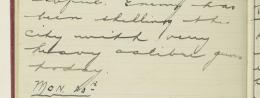 Enemy has
been shelling the
city with very
heavy calibre guns
today.
MON.